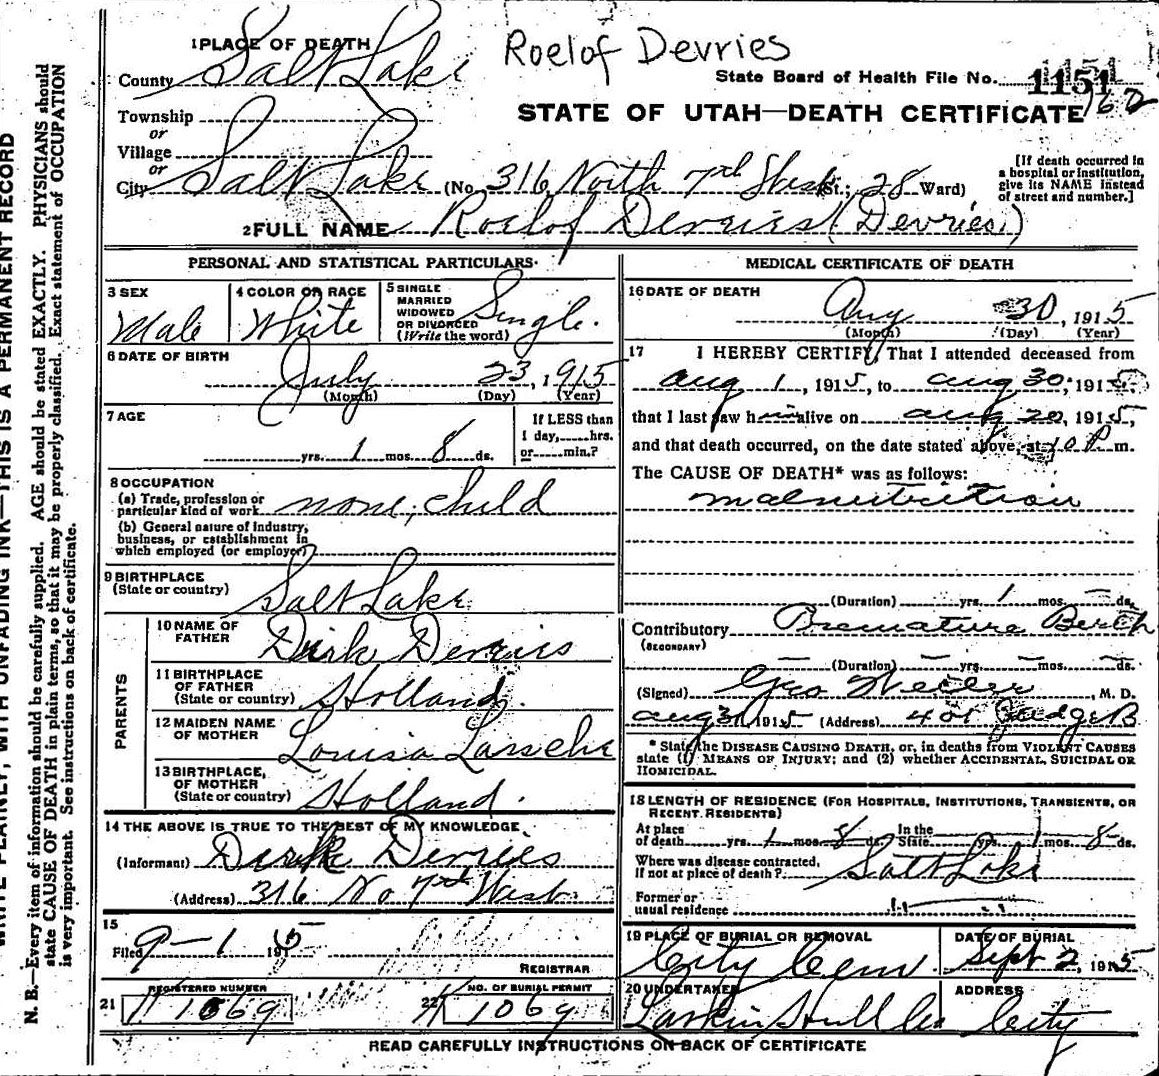 Roelof Devries
1 PLACE OF DEATH
County Salt Lake
State Board of Health File No. 1151
162
STATE OF UTAH—DEATH CERTIFICATE
Township
or
Village
or
City Salt Lake (No. 316 North 7th West St.; 28 Ward)
[If death occurred in
a hospital or institution,
give its NAME instead
of street and number.]
2 FULL NAME Roelof Devries (Devries.)
PERSONAL AND STATISTICAL PARTICULARS.
3 SEX
Male
4 COLOR OR RACE
White
5 SINGLE
MARRIED
WIDOWED
OR DIVORCED
(Write the word)
Single.
6 DATE OF BIRTH
July 23, 1915
(Month) (Day) (Year)
7 AGE
yrs. 1 mos. 8 ds.
If LESS than
1 day, hrs.
or min.?
8 OCCUPATION
(a) Trade, profession or
particular kind of work none; child
(b) General nature of industry,
business, or establishment in
which employed (or employer)
9 BIRTHPLACE
(State or country)
Salt Lake
PARENTS
10 NAME OF
FATHER Dirk Devries
11 BIRTHPLACE
OF FATHER
(State or country) Holland.
12 MAIDEN NAME
OF MOTHER Louisa
13 BIRTHPLACE,
OF MOTHER
(State or country) Holland.
14 THE ABOVE IS TRUE TO THE BEST OF MY KNOWLEDGE
(Informant) Dirk Devries
(Address) 316 No 7th West
15
Filed 9-1 1915
REGISTRAR
21 REGISTERED NUMBER
1069
22 NO. OF BURIAL PERMIT
1069
MEDICAL CERTIFICATE OF DEATH
16 DATE OF DEATH
Aug 30, 1915
(Month) (Day) (Year)
17 I HEREBY CERTIFY, That I attended deceased from
Aug 1, 1915, to Aug 30, 1915
that I last saw him alive on Aug 20, 1915,
and that death occurred, on the date stated above, at 10 P m.
The CAUSE OF DEATH* was as follows:
malnutrition
(Duration) yrs. 1 mos. — ds.
Contributory Premature Berth
(SECONDARY)
(Duration) — yrs. — mos. — ds.
(Signed) Geo , M. D.
Aug 31 1915 (Address) 401 Judge B
* State the DISEASE CAUSING DEATH, or, in deaths from VIOLENT CAUSES
state (1) MEANS OF INJURY; and (2) whether ACCIDENTAL, SUICIDAL OR
HOMICIDAL.
18 LENGTH OF RESIDENCE (FOR HOSPITALS, INSTITUTIONS, TRANSIENTS, OR
RECENT RESIDENTS)
At place
of death yrs. 1 mos. 8 ds. In the
State yrs. 1 mos. 8 ds.
Where was disease contracted,
if not at place of death? Salt Lake
Former or
usual residence
19 PLACE OF BURIAL OR REMOVAL
City Cem
DATE OF BURIAL
Sept 2, 1915
20 UNDERTAKER
Larkin Hull Co
ADDRESS
City
READ CAREFULLY INSTRUCTIONS ON BACK OF CERTIFICATE
WRITE PLAINLY, WITH UNFADING INK—THIS IS A PERMANENT RECORD
N. B.—Every item of information should be carefully supplied. AGE should be stated EXACTLY. PHYSICIANS should
state CAUSE OF DEATH in plain terms, so that it may be properly classified. Exact statement of OCCUPATION
is very important. See instructions on back of certificate.